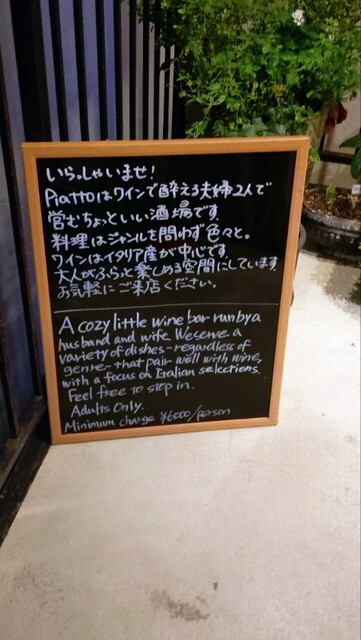 いらっしゃいませ!
Piattoはワインで酔える夫婦2人で
営むちょっといい酒場です.
料理はジャンルを問わず色々と。
ワインはイタリア産が中心です
大人がふらっと楽しめる空間にしています.
お気軽にご来店ください。
A cozy little wine bar run by a
husband and wife. We serve a
variety of dishes-regardless of
genre-that pair well with wine,
with a focus on Italian selections.
Feel free to stop in.
Adults Only.
Minimum charge ¥6000/person